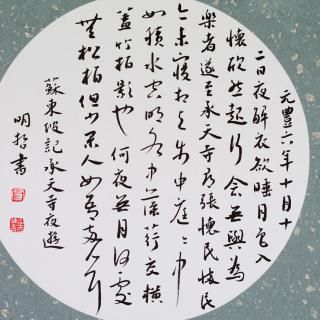 元豐六年十月十
二日夜解衣欲睡月色入
欣然起行念無與為
樂者遂至承天寺尋張懷民懷民
亦未寢相與步中庭〻中
如積水空明水中藻荇交橫
蓋竹柏影也何夜無月何處
無松柏但少閑人如吾兩人耳
蘇東坡記承天寺夜遊
明哲書